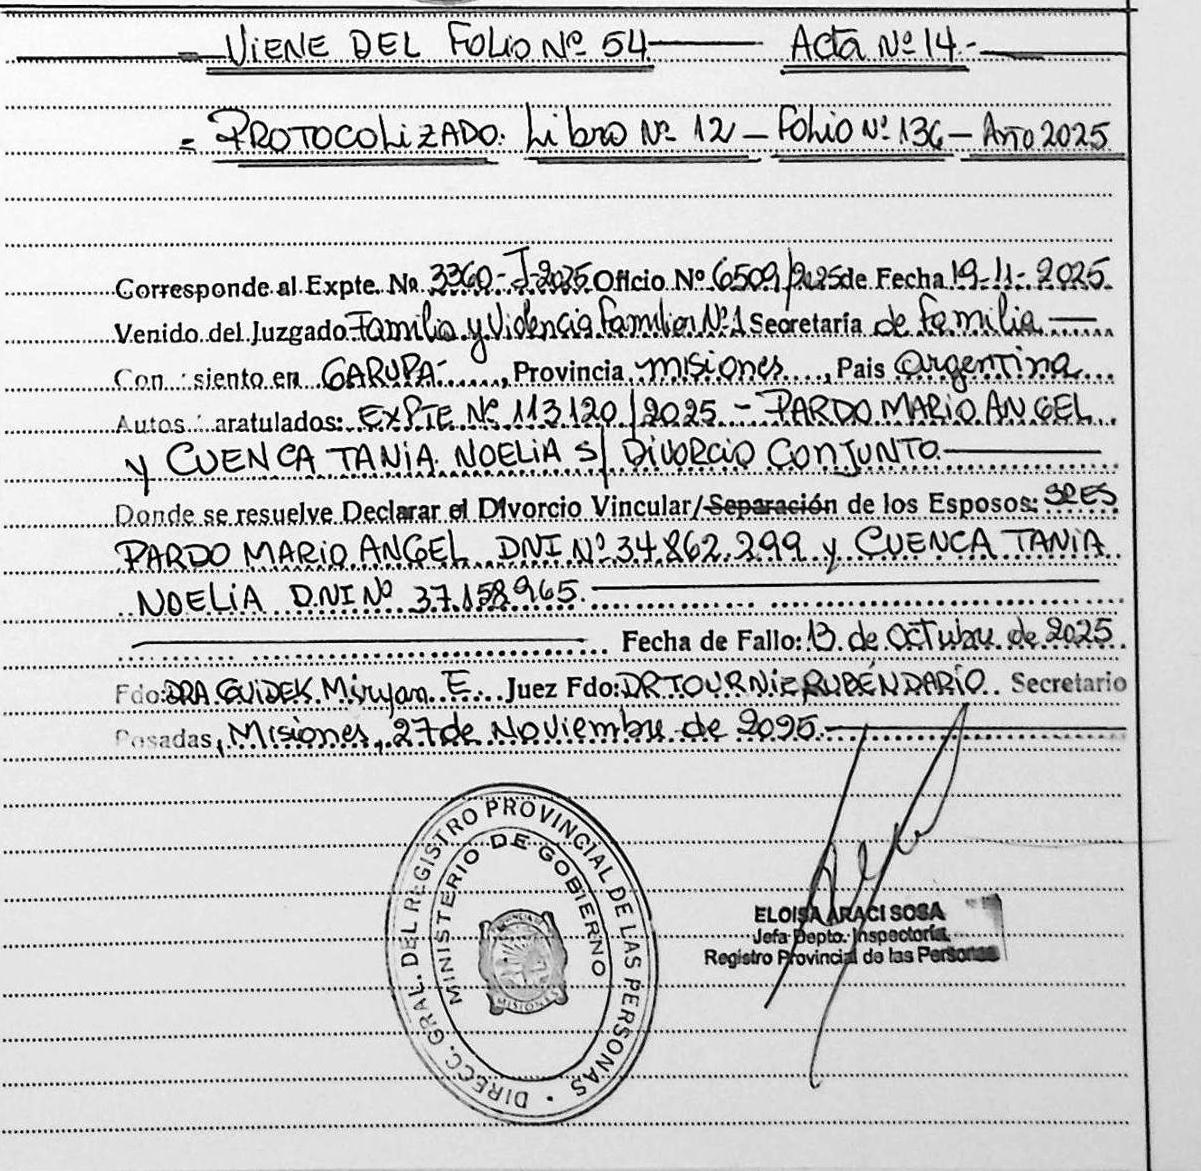 VIENE DEL FOLIO Nº 54 Acta Nº 14.-
= PROTOCOLIZADO: Libro Nº 12 - Folio Nº 136 - Año 2025
Corresponde al Expte. No 3360-J-2025 Oficio Nº 6509/2025 de Fecha 19-11-2025.
Venido del Juzgado Familia y Violencia Familiar Nº1 Secretaría de familia
Con siento en GARUPA , Provincia Misiones , Pais Argentina
Autos aratulados: EXPTE Nº 113.120/2025 - PARDO MARIO ANGEL
y CUENCA TANIA NOELIA S/ DIVORCIO CONJUNTO.
Donde se resuelve Declarar el Divorcio Vincular/Separación de los Esposos: SRES
PARDO MARIO ANGEL DNI Nº 34.862.299 y CUENCA TANIA
NOELIA D.NI Nº 37.158.965.
Fecha de Fallo: 13 de Octubre de 2025.
Fdo: DRA GUIDEK Miryan E. Juez Fdo: DR TOURNIZ RUBÉN DARÍO. Secretario
Posadas, Misiones, 27 de Noviembre de 2025.
DIRECC. GRAL. DEL REGISTRO PROVINCIAL DE LAS PERSONAS
MINISTERIO DE GOBIERNO
MISIONES
ELOISA ARACI SOSA
Jefa Depto. Inspectoría
Registro Provincial de las Personas